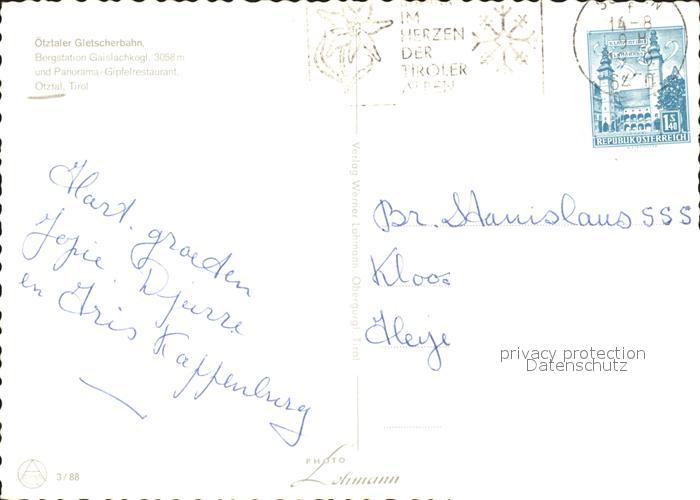 Ötztaler Gletscherbahn,
Bergstation Gaislachkogl, 3058 m
und Panorama-Gipfelrestaurant,
Ötztal, Tirol
IM
HERZEN
DER
TIROLER
ALPEN
14-8
1 S 40
REPUBLIK ÖSTERREICH
Hart. groeten
Jopie Djurre
en Iris Kappenburg
Verlag Werner Lohmann Obergurgl Tirol
Br. Stanislaus SSS
Kloos
Heije
privacy protection
Datenschutz
3/88
PHOTO
Lohmann